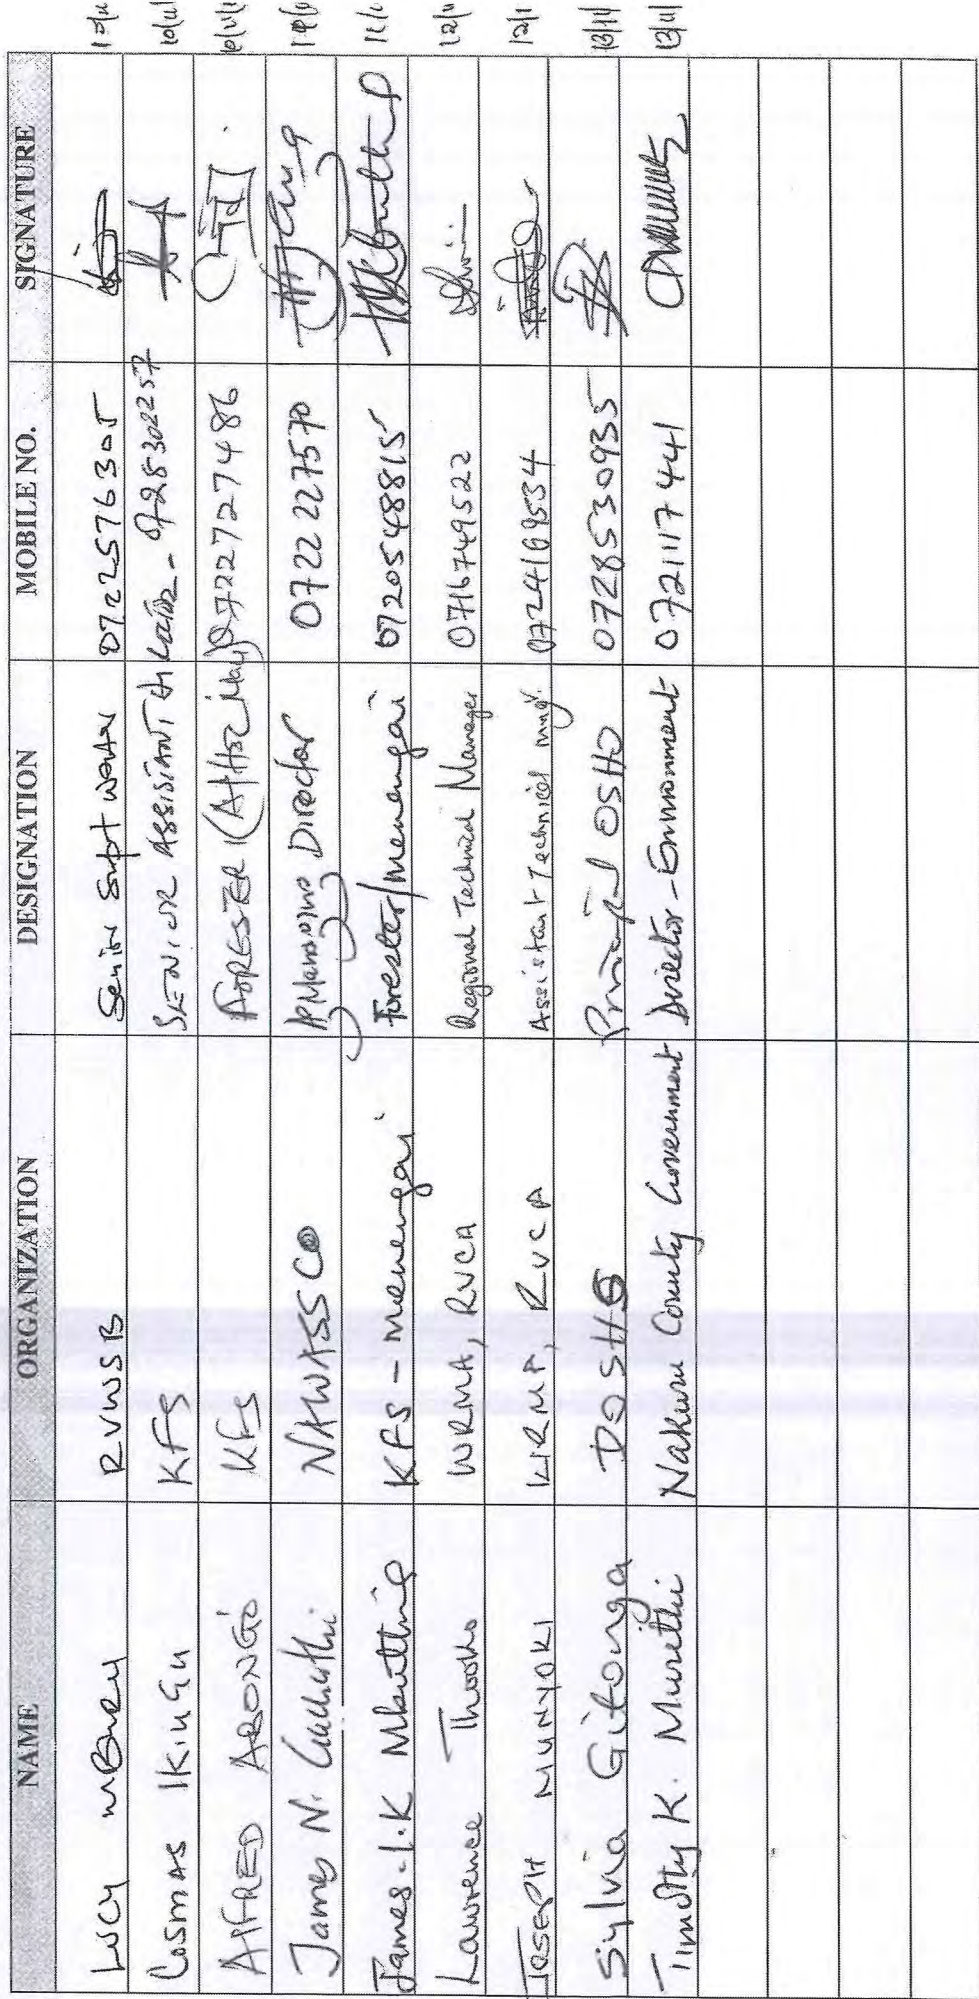 NAME ORGANIZATION DESIGNATION MOBILE NO. SIGNATURE
LUCY RVWSB Senior Supt Water 0722576305
COSMAS IKIUGU KFS SENIOR ASSISTANT 0728302257
ALFRED ABONG'O KFS FORESTER 0722727486
James N. Gachathi NAWASSCO Managing Director 0722227570
James I.K Mbuthia KFS - Menengai Forester/Menengai 0720548815
Lawrence Thooko WRMA, RVCA Regional Technical Manager 0716749522
JOSEPH MUNYOKI WRMA, RVCA Assistant Technical mngr. 0724169534
Sylvia Gitonga DOSHS Principal OSHO 0728530935
Timothy K. Murithi Nakuru County Government Director - Environment 0721117441